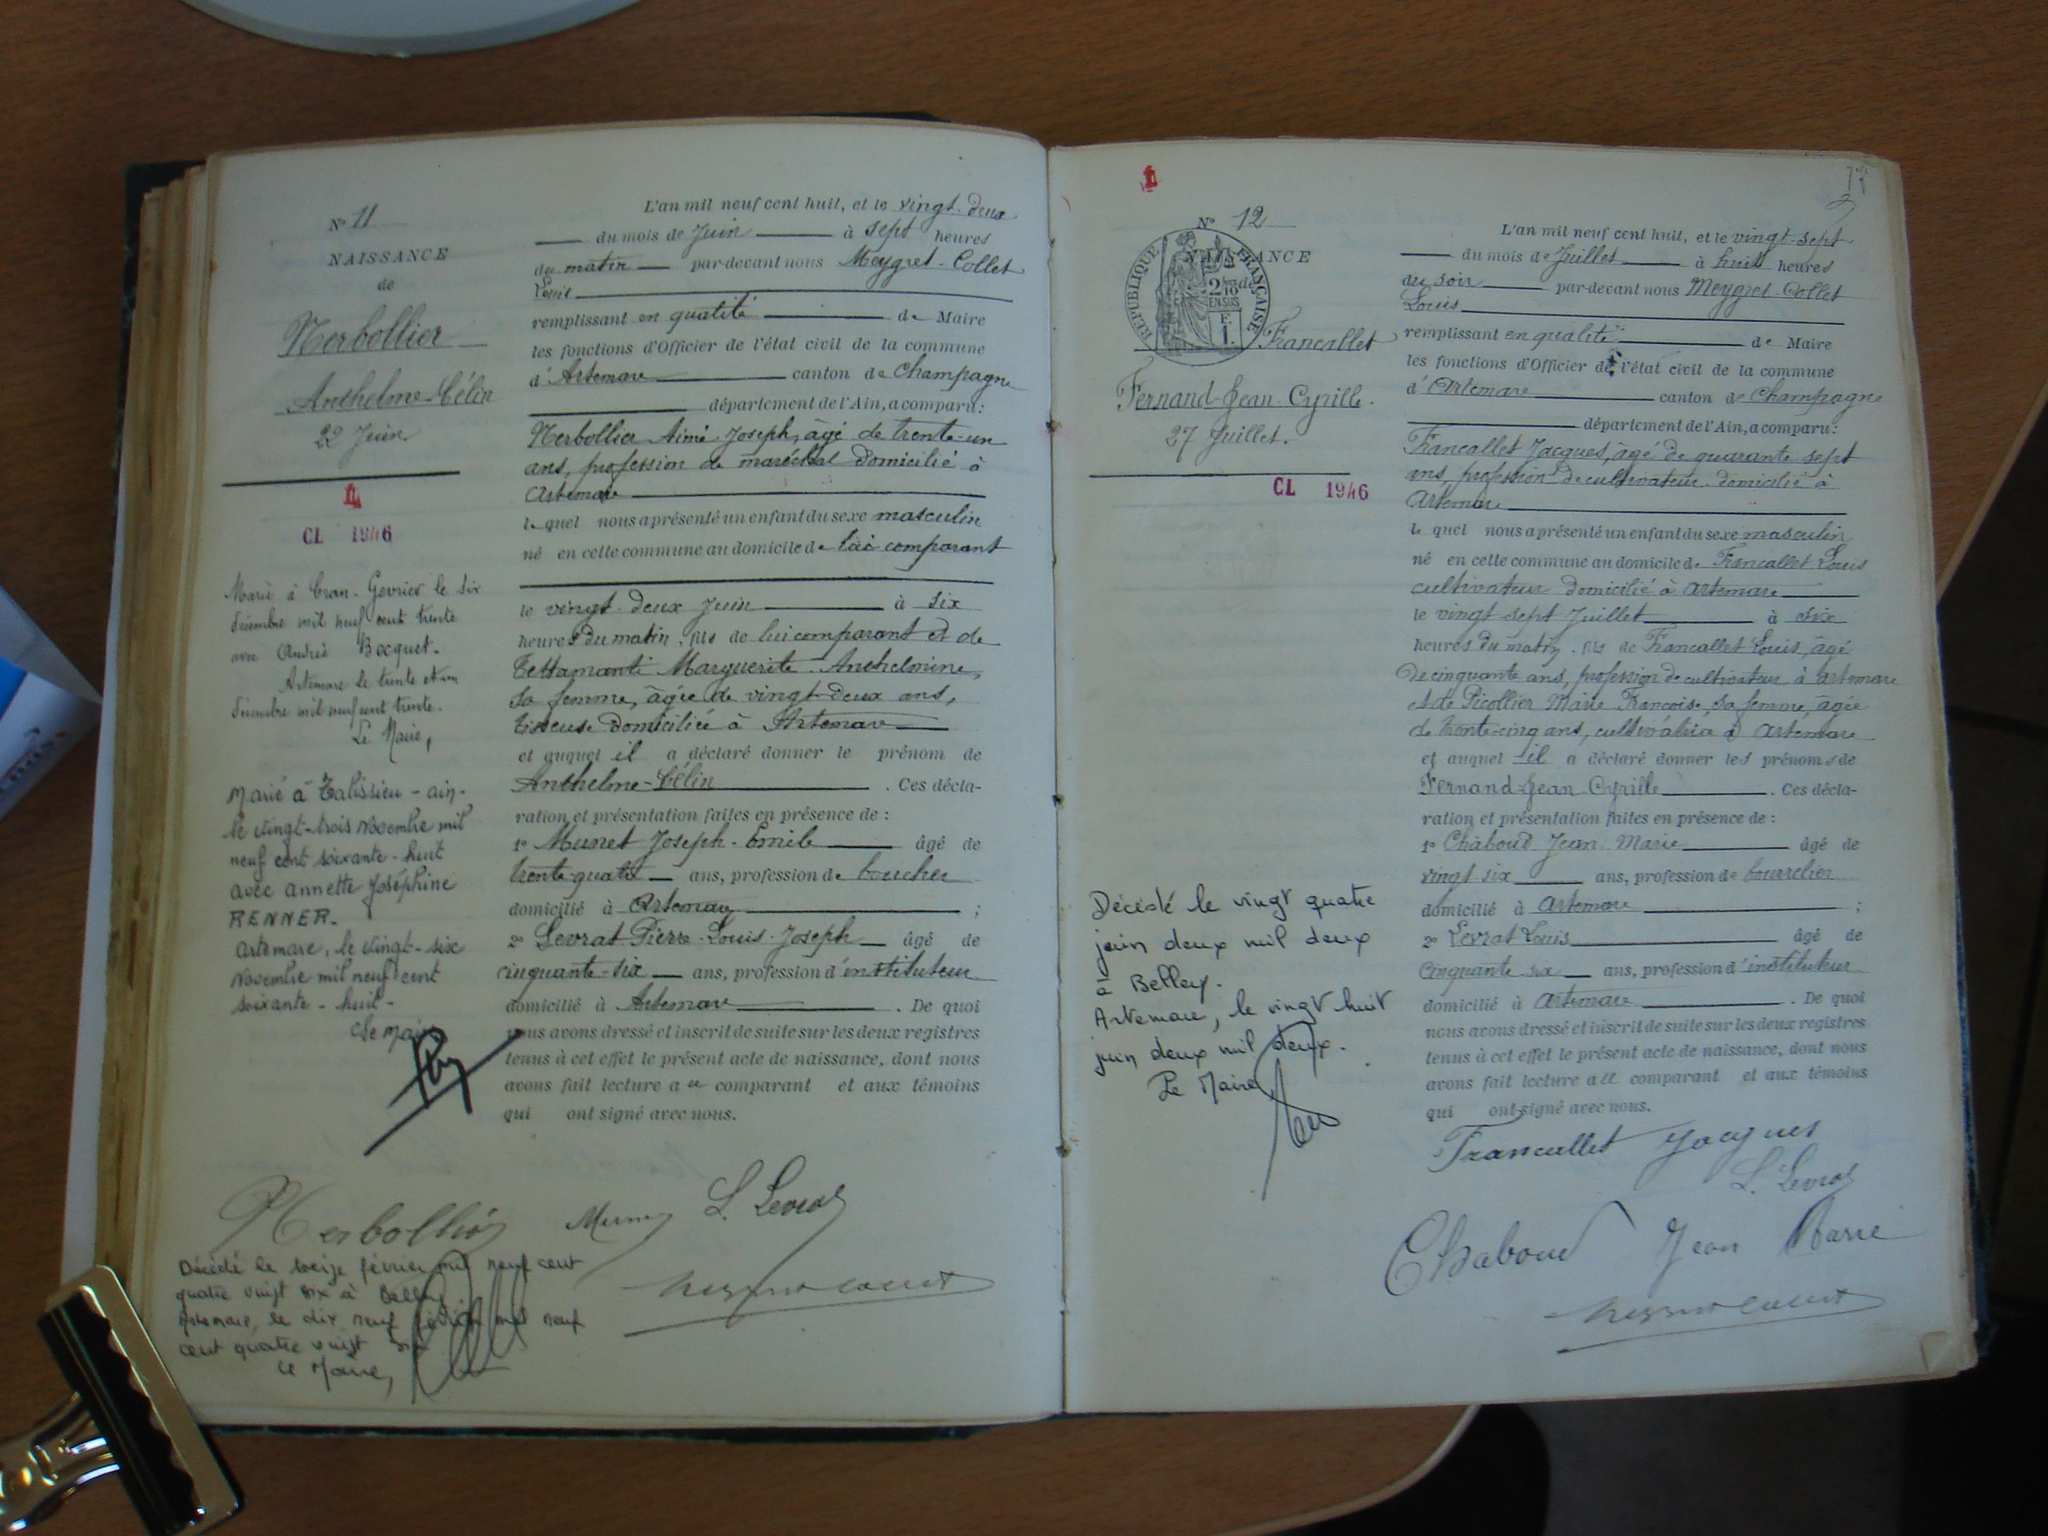 N° 11
NAISSANCE
de
Nerbollier
Anthelme-Célin
22 Juin
CL 1946
Marié à Cran-Gevrier le six
décembre mil neuf cent trente
avec Andrée Bocquet.
Artemare le trente et un
décembre mil neuf cent trente.
Le Maire,
Marié à Talissieu - ain -
le vingt-trois Novembre mil
neuf cent soixante-huit
avec annette Joséphine
RENNER.
artemare, le vingt-six
Novembre mil neuf cent
soixante-huit-
Le Maire
L'an mil neuf cent huit, et le vingt-deux
du mois de Juin à sept heures
du matin par-devant nous Meygret-Collet
Louis
remplissant en qualité de Maire
les fonctions d'Officier de l'état civil de la commune
d'Artemare canton de Champagne
département de l'Ain, a comparu:
Nerbollier Aimé Joseph, âgé de trente-un
ans, profession de maréchal domicilié à
Artemare
lequel nous a présenté un enfant du sexe masculin
né en cette commune au domicile de lui comparant
le vingt-deux Juin à six
heures du matin, fils de lui comparant et de
Tettamanti Marguerite-Anthelmine,
sa femme, âgée de vingt-deux ans,
tisseuse domiciliée à Artemare
et auquel il a déclaré donner le prénom de
Anthelme-Célin. Ces décla-
ration et présentation faites en présence de :
1° Munet Joseph-Emile âgé de
trente-quatre ans, profession de boucher
domicilié à Artemare ;
2° Levrat Pierre-Louis-Joseph âgé de
cinquante-six ans, profession d'instituteur
domicilié à Artemare. De quoi
nous avons dressé et inscrit de suite sur les deux registres
tenus à cet effet le présent acte de naissance, dont nous
avons fait lecture au comparant et aux témoins
qui ont signé avec nous.
Nerbollier Munet L. Levrat
Meygret Collet
Décédé le treize février mil neuf cent
quatre vingt six à Belley
Artemare, le dix neuf février mil neuf
cent quatre vingt six
Le Maire,
N° 12
NAISSANCE
de
RÉPUBLIQUE FRANÇAISE
2/10 EN SUS
F. 1.
Francallet
Fernand-Jean-Cyrille.
27 Juillet.
CL 1946
Décédé le vingt quatre
juin deux mil deux
à Belley.
Artemare, le vingt huit
juin deux mil deux.
Le Maire
L'an mil neuf cent huit, et le vingt-sept
du mois de Juillet à huit heures
du soir par-devant nous Meygret-Collet
Louis
remplissant en qualité de Maire
les fonctions d'Officier de l'état civil de la commune
d'Artemare canton de Champagne
département de l'Ain, a comparu:
Francallet Jacques, âgé de quarante sept
ans, profession de cultivateur domicilié à
Artemare
lequel nous a présenté un enfant du sexe masculin
né en cette commune au domicile de Francallet Louis
cultivateur domicilié à Artemare
le vingt-sept Juillet à six
heures du matin, fils de Francallet Louis, âgé
de cinquante ans, profession de cultivateur à Artemare
et de Picollier Marie Françoise, sa femme, âgée
de trente-cinq ans, cultivatrice à Artemare
et auquel il a déclaré donner les prénoms de
Fernand-Jean-Cyrille. Ces décla-
ration et présentation faites en présence de :
1° Chaboud Jean Marie âgé de
vingt six ans, profession de bourrelier
domicilié à Artemare ;
2° Levrat Louis âgé de
cinquante-six ans, profession d'instituteur
domicilié à Artemare. De quoi
nous avons dressé et inscrit de suite sur les deux registres
tenus à cet effet le présent acte de naissance, dont nous
avons fait lecture au comparant et aux témoins
qui ont signé avec nous.
Francallet Jacques
L. Levrat
Chaboud Jean Marie
Meygret Collet